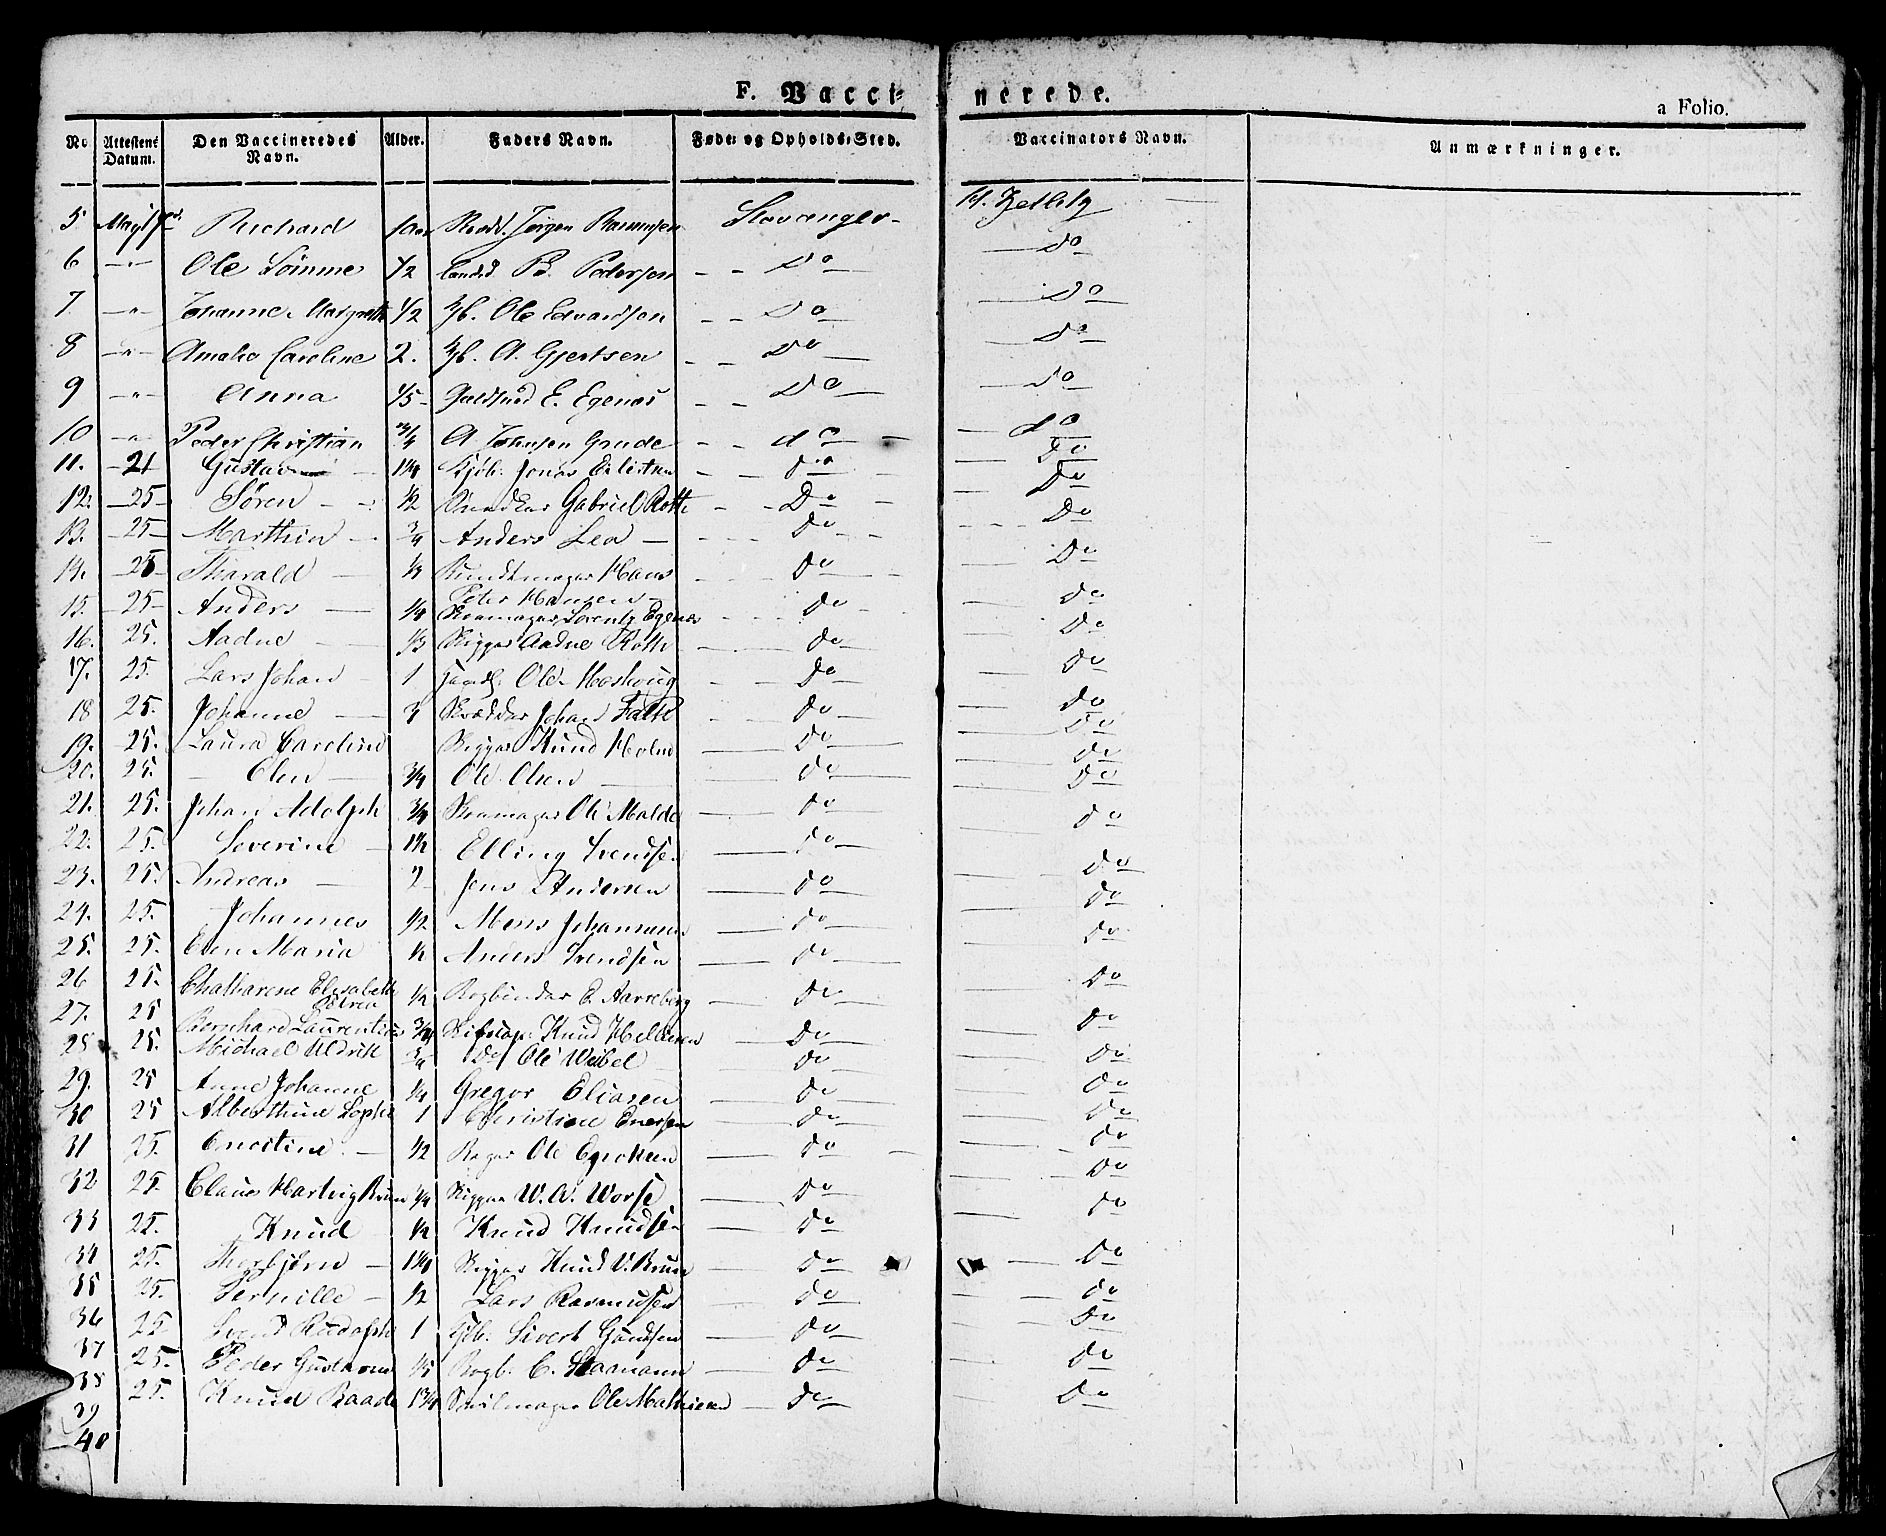 F. Vacci- nerede.
a Folio.
No Attestens Datum. Den Vaccineredes Navn. Alder. Faders Navn. Føde- og Opholds-Sted. Vaccinators Navn. Anmærkninger.
5 Richard 1 Aar Jørgen Rasmusen Stavanger H. Zetlitz
6 -"- Ole Sömme 1/2 Candid. P. Pedersen Do Do
7 -"- Johanne Margrethe 1/2 Ole Edvardsen Do Do
8 -"- Amalia Caroline 2. A. Gjertsen Do Do
9 -"- Anna 1/5 Guldsmed E. Egenæs Do Do
10 -"- Peder Christian 3/4 A. Johnsen Grude do do
11. 21 Gustav 1 1/4 Jonas Eilertsen do Do
12. 25 Søren 1/2 Gabriel Roth Do Do
13. 25 Marthin 3/4 Anders Lea do Do
14. 25 Tharald 1/3 Bundtmager Hans Peter Hansen do Do
15. 25 Anders 1/4 Skomager Lorentz Egenæs do do
16. 25. Aadne 1/3 Rigger Aadne Roth do do
17. 25. Lars Johan 1 Ole Moshoug do do
18 25. Johanne 3 Skrædder Johan Falk do do
19. 25. Laura Caroline Rigger Knud Holm do do
20. 25. Olen 3/4 Ole Olsen do do
21. 25. Johan Adolph 3/4 Skomager Ole Malde do do
22. 25. Severine 1 1/2 Elling Svendsen do do
23. 25. Andreas 2 Jens Andersen do do
24. 25. Johannes 1/2 Mons Johannesen do do
25. 25. Elen Maria 1/2 Anders Svendsen do do
26 25. Chatharene Elisabeth 1/2 Bogbinder E. Aarreberg do do
27. 25 Bernhard Laurentius 3/4 Skibscap. Knud Helliesen do do
28 25. Michael Uldrik 3/4 Do Ole Weibel do do
29. 25 Anne Johanne 1/4 Gregor Eliasen do do
30 25 Alberthine Sophie 1 Christian Evensen do do
31 25. Enertine 1/2 Bager Ole do do
32 25. Claus Hartvig Bruun 1/4 Rigger W. A. Worse do do
33 25. Knud 1/2 Knud Knudsen do do
34 25. Thorbjørn 1 1/4 Rigger Knud V. Bruun do do
35 25. Pernille 1/2 Lars Rasmusen do do
36 25 Svend Rudolph 1 Sivert Gundsen do do
37 25. Peder Gustavus 1/5 Bogb. C. do do
38 25. Knud Baade 1 3/4 Seilmager Ole Mathiesen do do
39
40